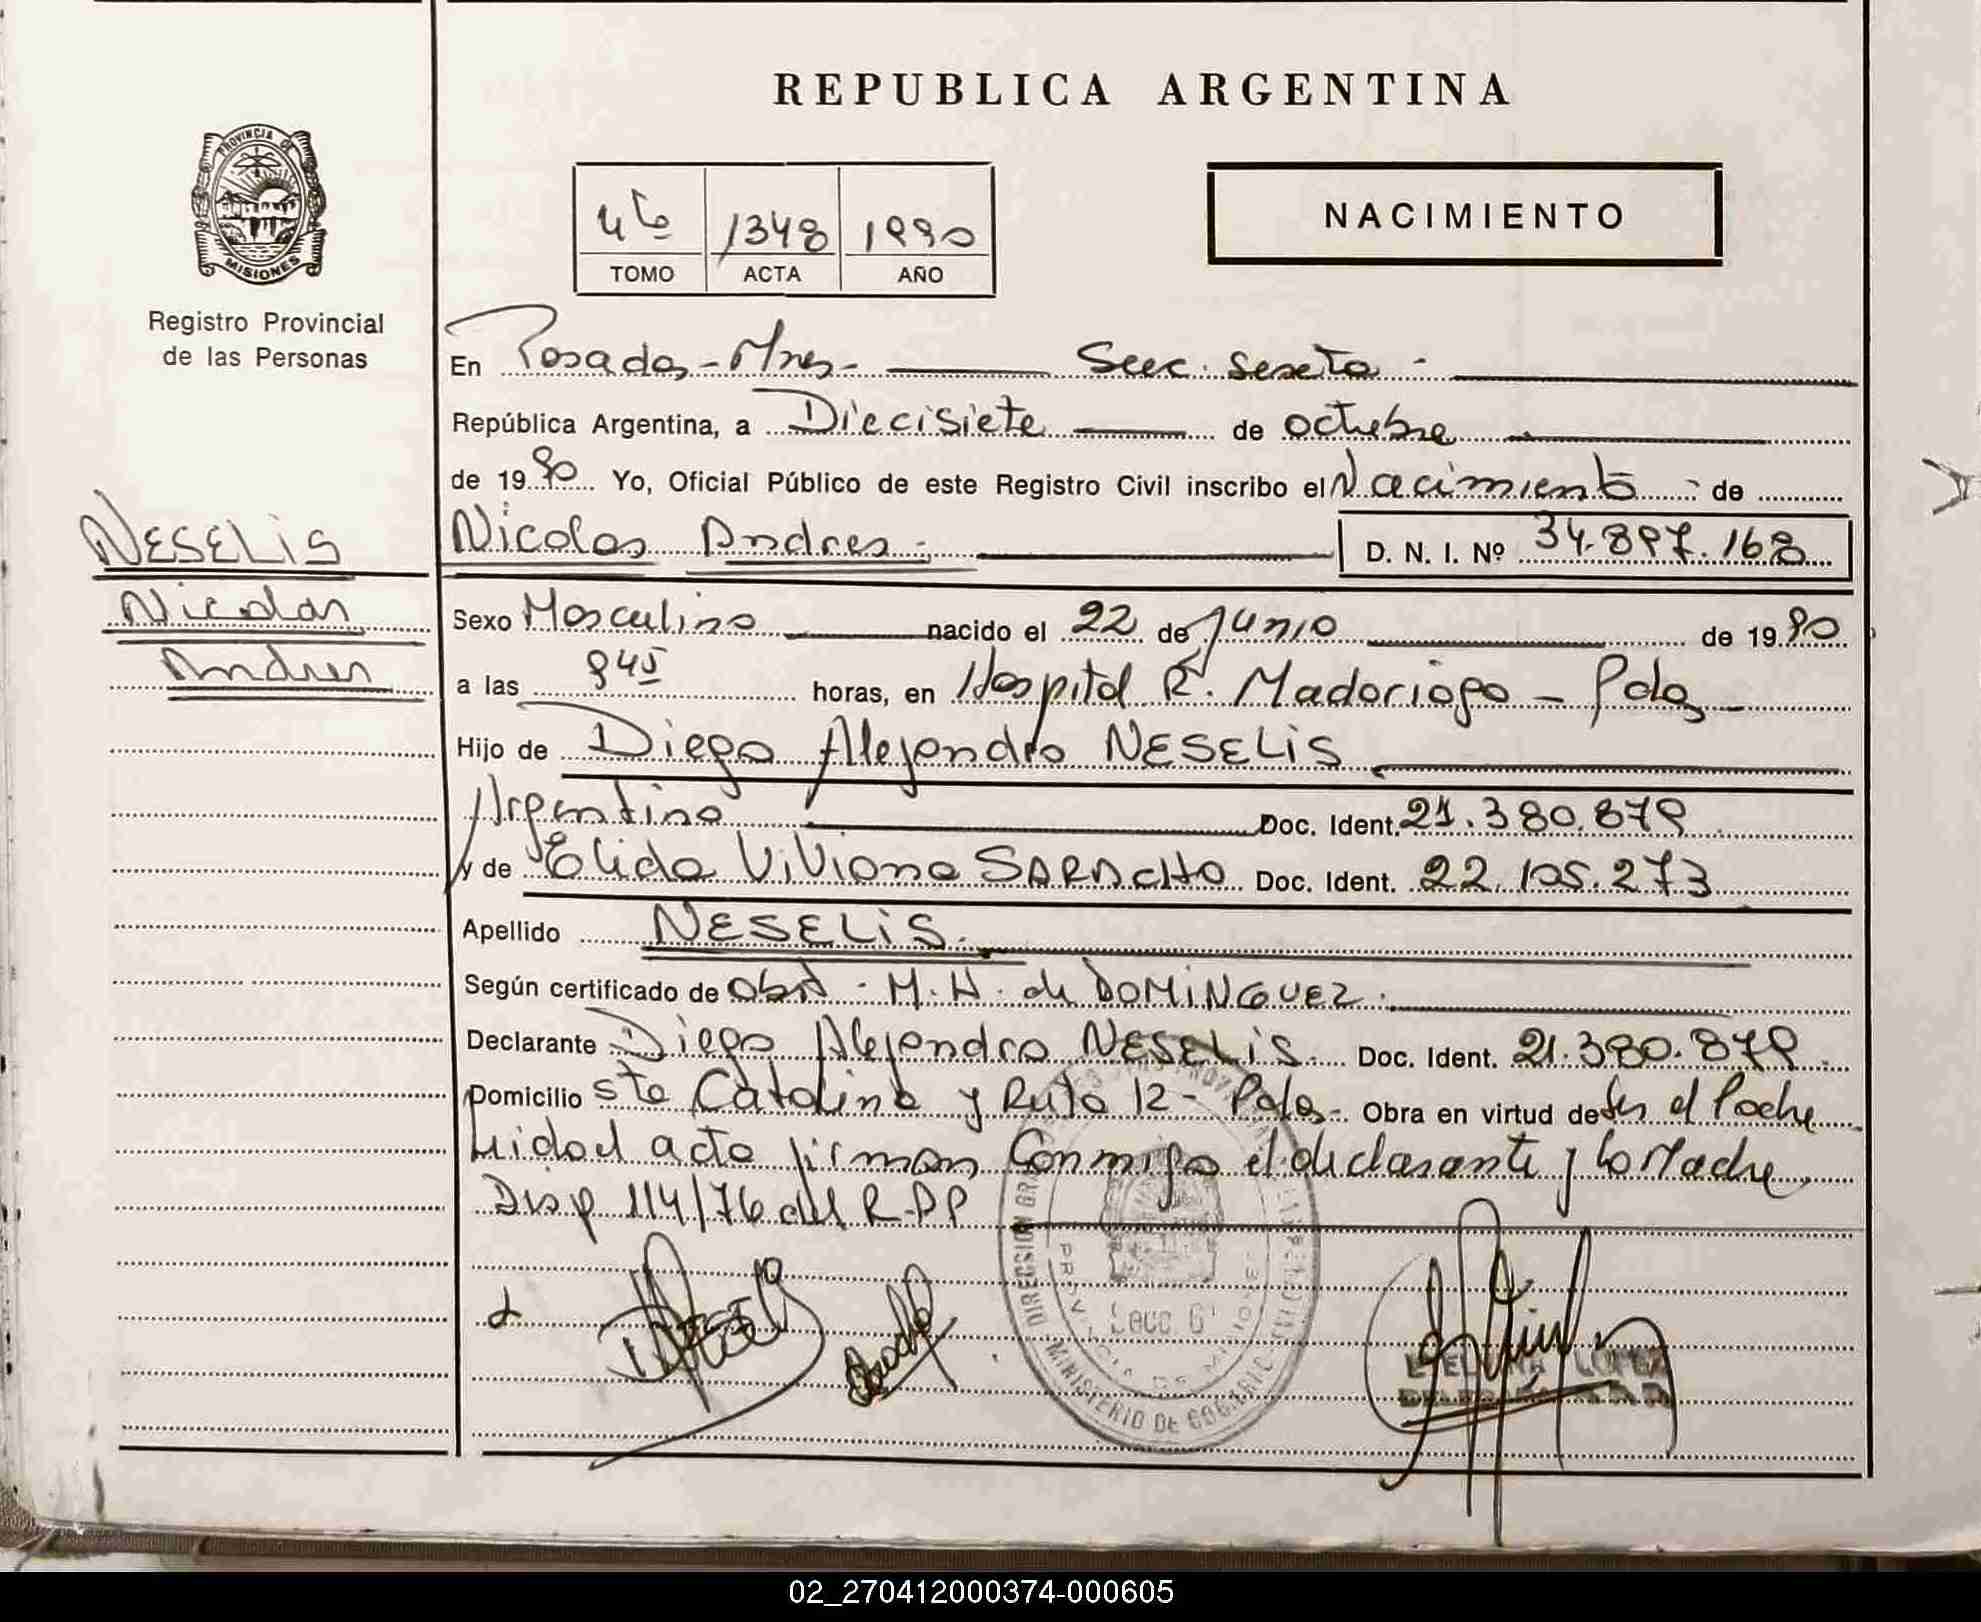 REPUBLICA ARGENTINA
PROVINCIA DE
MISIONES
Registro Provincial
de las Personas
4to 1348 1990
TOMO ACTA AÑO
NACIMIENTO
En Posadas - Mnes - Secc. sexta -
República Argentina, a Diecisiete de octubre
de 1990 Yo, Oficial Público de este Registro Civil inscribo el Nacimiento - de
NESELIS
Nicolas
Andres
Nicolas Andres - D. N. I. Nº 34.897.168
Sexo Masculino nacido el 22 de Junio de 1990
a las 945 horas, en Hospital R. Madariaga - Pdas -
Hijo de Diego Alejandro NESELIS
Argentino Doc. Ident. 21.380.879
y de Elida Viviana SARACHO Doc. Ident. 22.105.273
Apellido NESELIS.
Según certificado de Obst. M. H. de DOMINGUEZ.
Declarante Diego Alejandro NESELIS Doc. Ident. 21.380.879
Domicilio Sta Catalina y Ruta 12 - Pdas - Obra en virtud de Ser el Padre
Leida el acta firman Conmigo el declarante y la Madre
Disp 114/76 del R.P.P
Secc. 6
MINISTERIO DE
LOPEZ
02_270412000374-000605